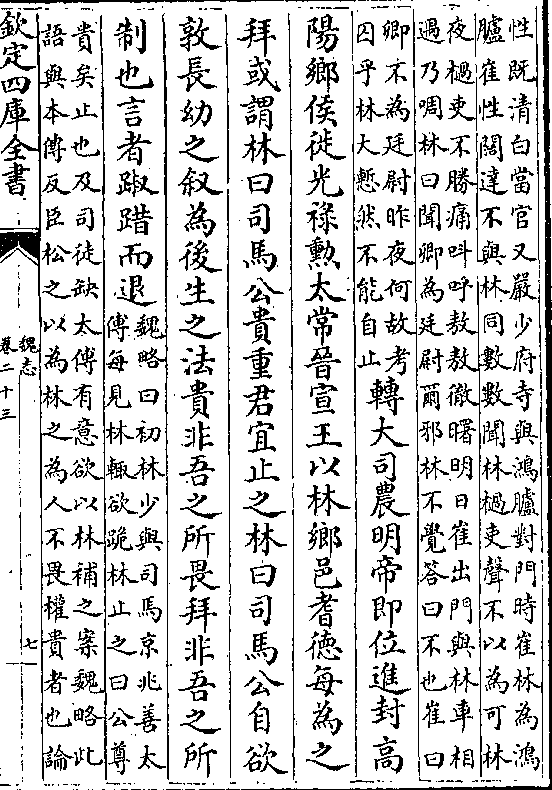 性既清白當官又嚴少府寺與鴻臚對門時崔林為鴻
臚崔性闊達不與林同數數聞林檛吏聲不以為可林
夜檛吏不勝痛呌呼敖敖徹曙明日崔出門與林車相
遇乃啁林曰聞卿為廷尉爾邪林不覺答曰不也崔曰
卿不為廷尉昨夜何故考
囚乎林大慙然不能自止
轉大司農明帝即位進封高
陽鄉侯徙光祿勲太常晉宣王以林鄉邑耆德每為之
拜或謂林曰司馬公貴重君宜止之林曰司馬公自欲
敦長幼之叙為後生之法貴非吾之所畏拜非吾之所
制也言者踧踖而退
魏略曰初林少與司馬京兆善太
傅每見林輒欲跪林止之曰公尊
貴矣止也及司徒缺太傅有意欲以林補之案魏略此
語與本傳反臣松之以為林之為人不畏權貴者也論
欽定四庫全書
魏志
卷二十三
七